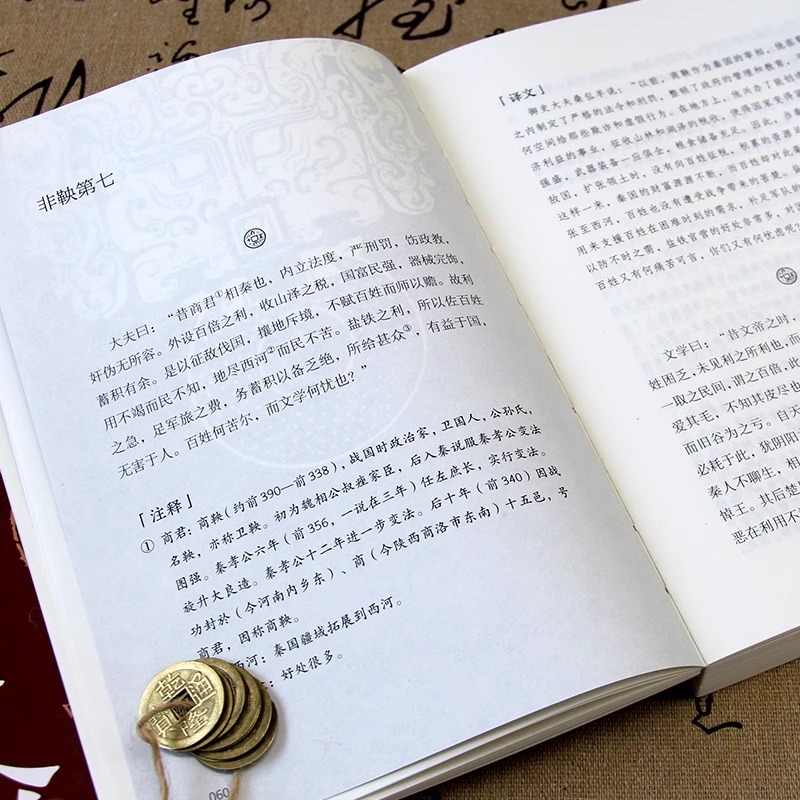 非鞅第七
大夫曰：“昔商君①相秦也，内立法度，严刑罚，饬政教，
奸伪无所容。外设百倍之利，收山泽之税，国富民强，器械完饰，
蓄积有余。是以征敌伐国，攘地斥境，不赋百姓而师以赡。故利
用不竭而民不知，地尽西河②而民不苦。盐铁之利，所以佐百姓
之急，足军旅之费，务蓄积以备乏绝，所给甚众③，有益于国，
无害于人。百姓何苦尔，而文学何忧也？”
「注释」
① 商君：商鞅（约前390—前338），战国时政治家，卫国人，公孙氏，
名鞅，亦称卫鞅。初为魏相公叔痤家臣，后入秦说服秦孝公变法
图强。秦孝公六年（前356，一说在三年）任左庶长，实行变法。
旋升大良造。秦孝公十二年进一步变法。后十年（前340）因战
功封於（今河南内乡东）、商（今陕西商洛市东南）十五邑，号
商君，因称商鞅。
西河：秦国疆域拓展到西河。
：好处很多。
060
「译文」
御史大夫桑弘羊说：“以前，商鞅作为秦国的宰相，他在
之内制定了严格的法令和刑罚，整顿了政府的管理和教育，
何空间给那些欺诈和虚假行为。在地方上，他兴办了
济利益的事业，征收山林和湖泽的税收，使得国家变
强盛，武器装备一应俱全，粮食储备充足。因此，
敌国，扩张领土时，没有向百姓征税，
这样一来，秦国的财富源源不断，而百姓却对此
张至西河，百姓也没有遭受战争带来的苦楚。
用来支援百姓在困难时刻的需求，补足军队的
以防不时之需，盐铁官营的好处非常多，对国
百姓又有何痛苦可言，你们又有何忧虑呢
文学曰：“昔文帝之时，
姓困乏，未见利之所利也，而
一取之民间，谓之百倍，此
爱其毛，不知其皮尽也
而旧谷为之亏。自天
必耗于此，犹阴阳
秦人不聊生，相
悼王。其后楚
恶在利用不
乾隆